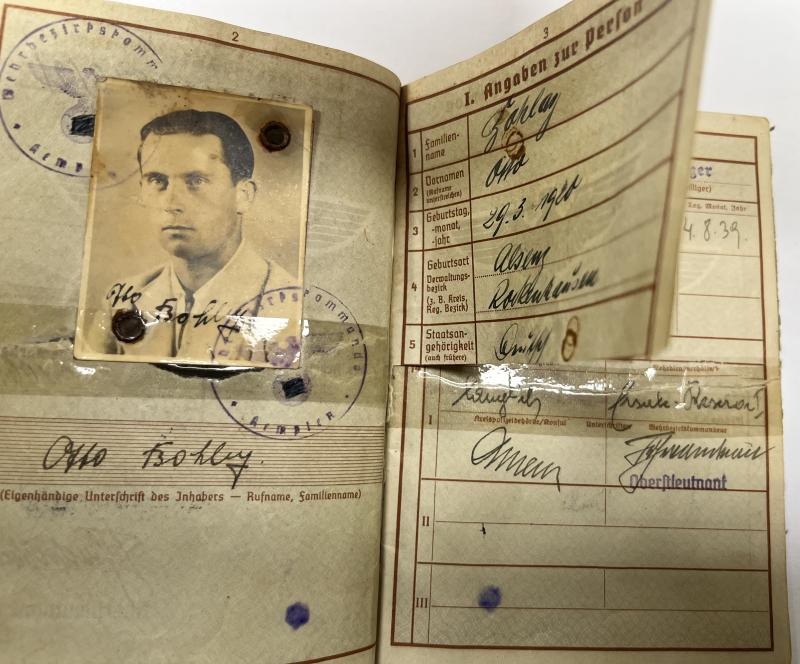 2
Wehrbezirkskomm
Kempten
Otto Bohley
Wehrbezirkskommando
Kempten
Otto Bohley.
(Eigenhändige Unterschrift des Inhabers — Rufname, Familienname)
3
I. Angaben zur Person
1 Familien-
name
Bohley
2 Vornamen
(Rufname
unterstreichen)
Otto
3 Geburtstag,
-monat,
-jahr
29.3.1920
4 Geburtsort
Verwaltungs-
bezirk
(z. B. Kreis,
Reg. Bezirk)
Alsenz
Rockenhausen
5 Staatsan-
gehörigkeit
(auch frühere)
ger
Tag, Monat, Jahr
4.8.39.
I
Kreispolizeibehörde/Konsul
Unterschriften
Wehrbezirkskommandeur
Oberstleutnant
II
III